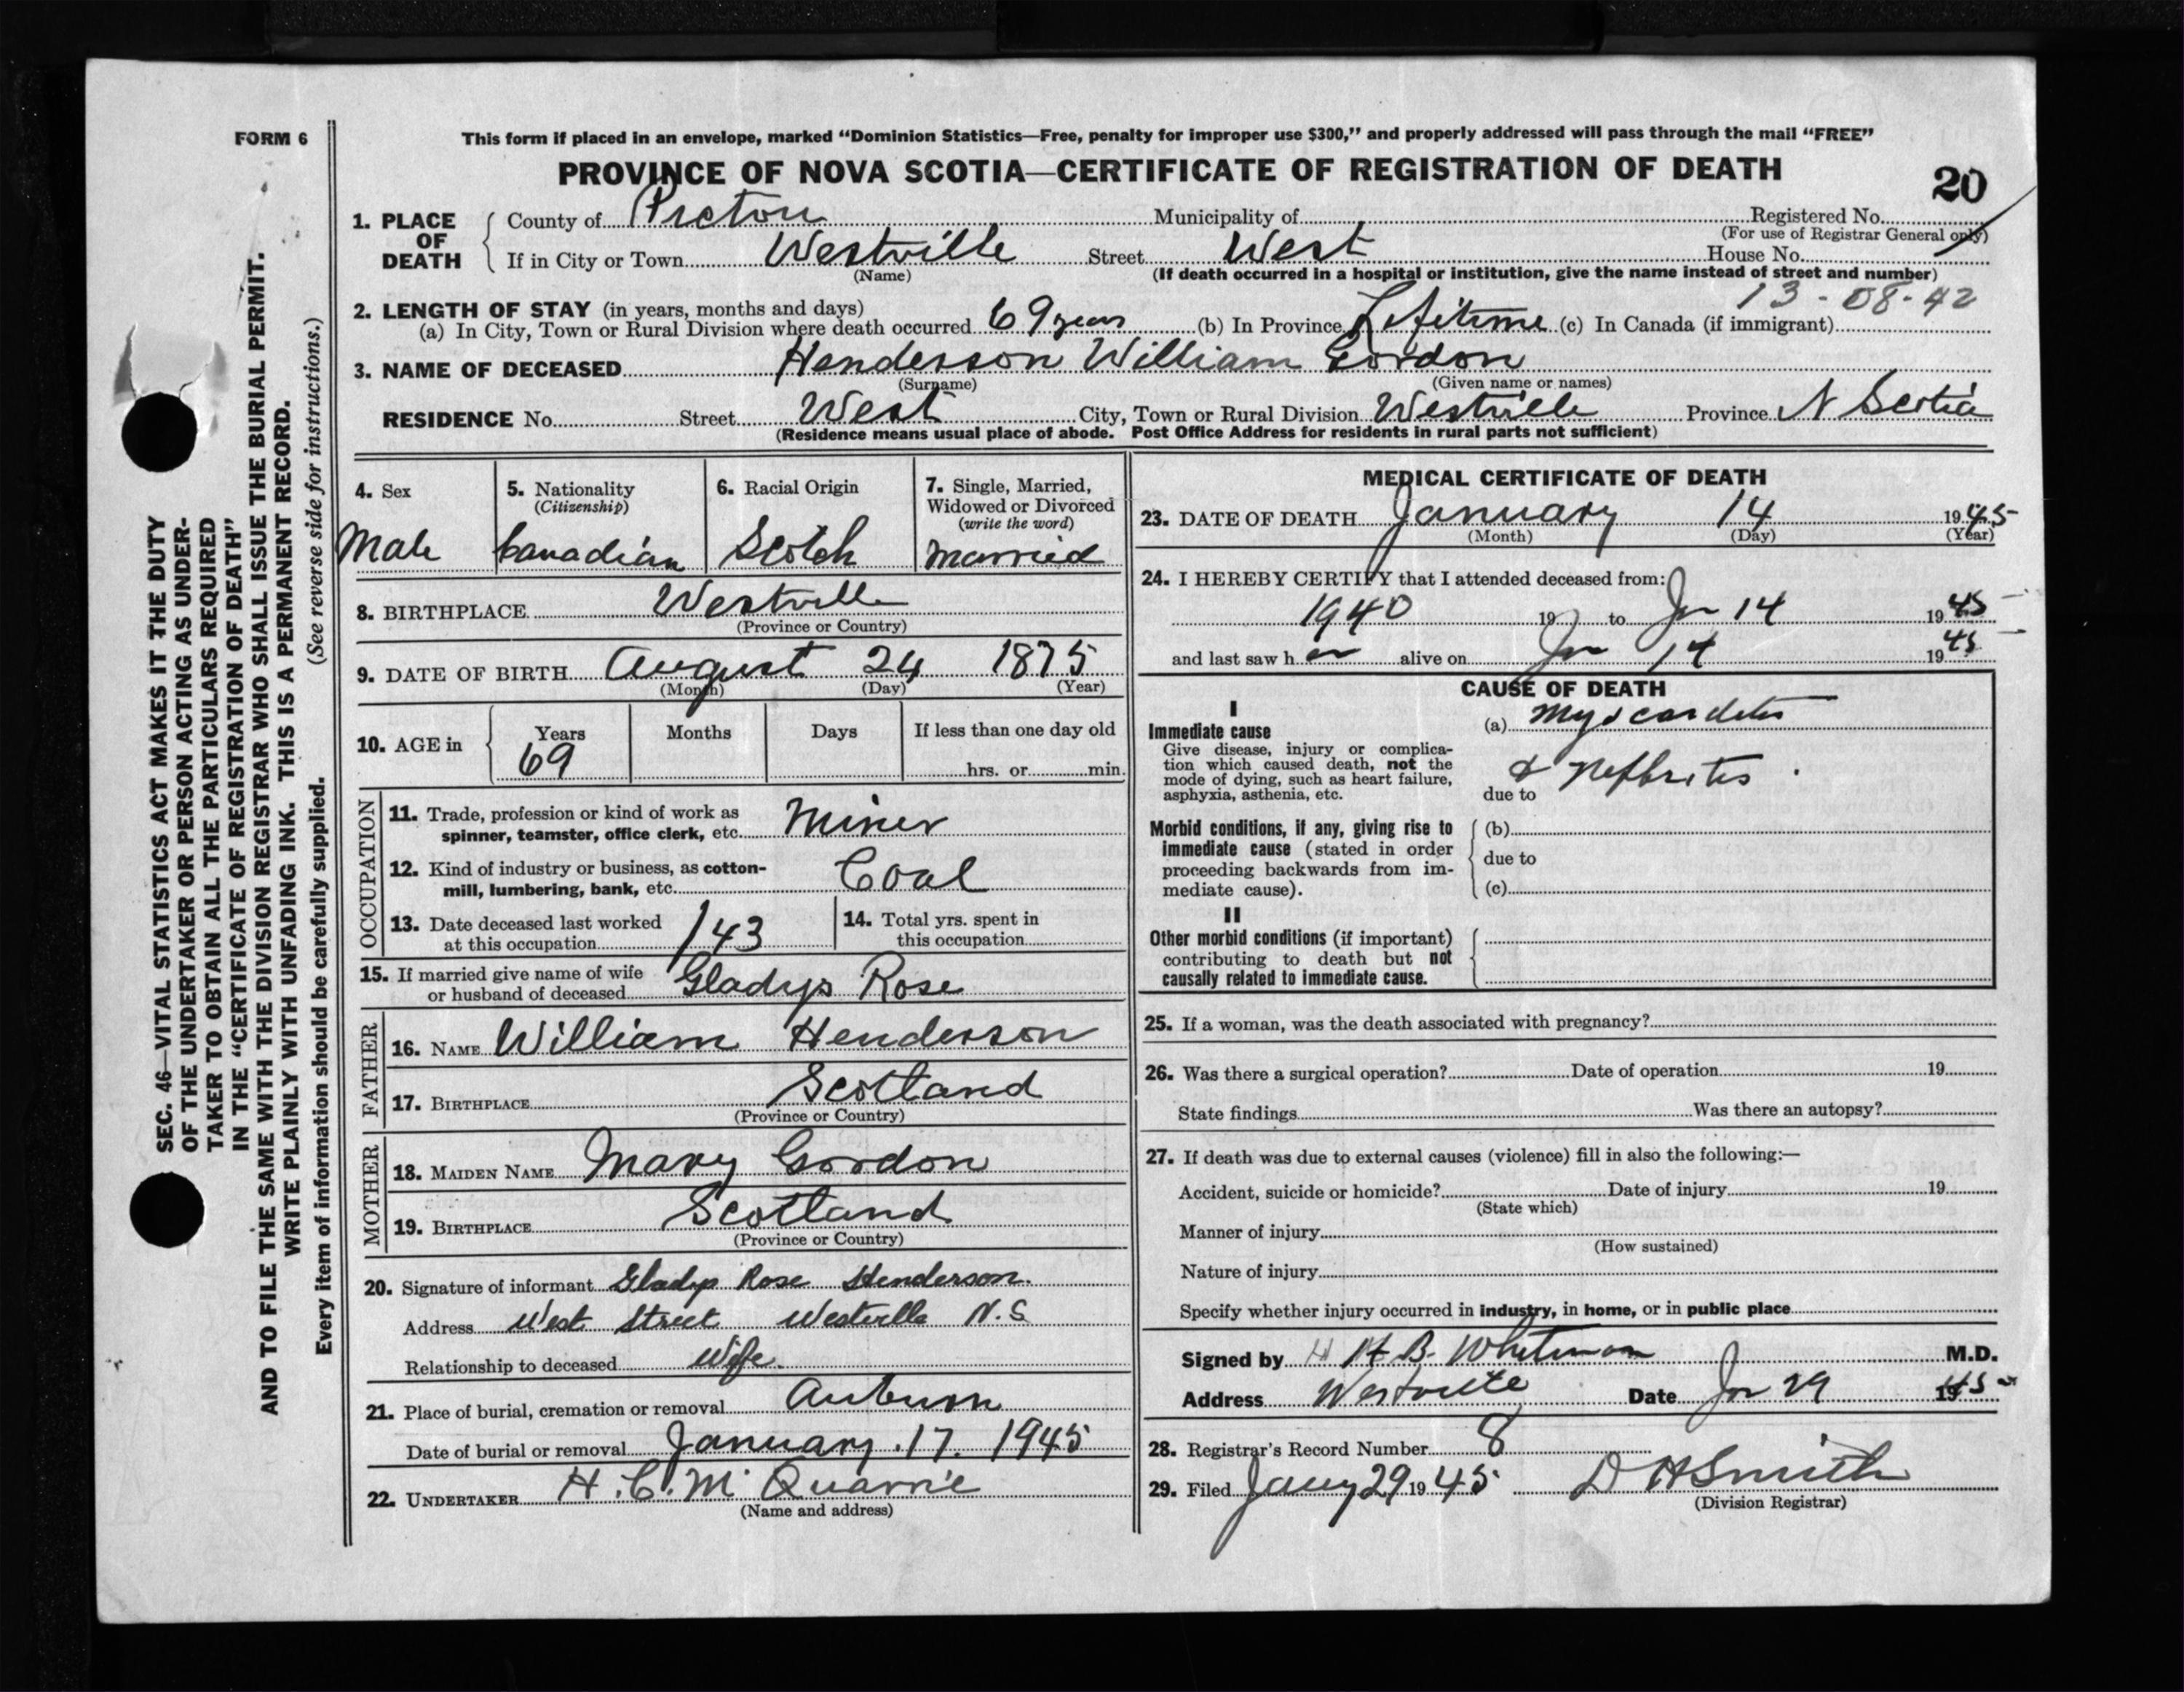 FORM 6
This form if placed in an envelope, marked “Dominion Statistics—Free, penalty for improper use $300,” and properly addressed will pass through the mail “FREE”
PROVINCE OF NOVA SCOTIA—CERTIFICATE OF REGISTRATION OF DEATH
20
1. PLACE OF DEATH
County of Pictou Municipality of Registered No.
(For use of Registrar General only)
If in City or Town Westville Street West House No.
(Name) (If death occurred in a hospital or institution, give the name instead of street and number)
13-08-42
2. LENGTH OF STAY (in years, months and days)
(a) In City, Town or Rural Division where death occurred 69 years (b) In Province Lifetime (c) In Canada (if immigrant)
3. NAME OF DECEASED Henderson William Gordon
(Surname) (Given name or names)
RESIDENCE No. Street West City, Town or Rural Division Westville Province N Scotia
(Residence means usual place of abode. Post Office Address for residents in rural parts not sufficient)
4. Sex
Male
5. Nationality
(Citizenship)
Canadian
6. Racial Origin
Scotch
7. Single, Married,
Widowed or Divorced
(write the word)
Married
8. BIRTHPLACE Westville
(Province or Country)
9. DATE OF BIRTH August 24 1875
(Month) (Day) (Year)
10. AGE in Years Months Days If less than one day old
69 hrs. or min.
OCCUPATION
11. Trade, profession or kind of work as
spinner, teamster, office clerk, etc. Miner
12. Kind of industry or business, as cotton-
mill, lumbering, bank, etc. Coal
13. Date deceased last worked
at this occupation 1/43
14. Total yrs. spent in
this occupation
15. If married give name of wife
or husband of deceased Gladys Rose
FATHER
16. NAME William Henderson
17. BIRTHPLACE Scotland
(Province or Country)
MOTHER
18. MAIDEN NAME Mary Gordon
19. BIRTHPLACE Scotland
(Province or Country)
20. Signature of informant Gladys Rose Henderson.
Address West Street Westville N.S
Relationship to deceased Wife.
21. Place of burial, cremation or removal Auburn
Date of burial or removal January 17. 1945
22. UNDERTAKER H.C. McQuarrie
(Name and address)
MEDICAL CERTIFICATE OF DEATH
23. DATE OF DEATH January 14 1945
(Month) (Day) (Year)
24. I HEREBY CERTIFY that I attended deceased from:
1940 19 to Jan 14 1945
and last saw h alive on Jan 14 1945
CAUSE OF DEATH
I
Immediate cause
Give disease, injury or complica-
tion which caused death, not the
mode of dying, such as heart failure,
asphyxia, asthenia, etc.
(a) Myocarditis
& Nephritis.
due to
Morbid conditions, if any, giving rise to
immediate cause (stated in order
proceeding backwards from im-
mediate cause).
(b)
due to
(c)
II
Other morbid conditions (if important)
contributing to death but not
causally related to immediate cause.
25. If a woman, was the death associated with pregnancy?
26. Was there a surgical operation? Date of operation 19
State findings Was there an autopsy?
27. If death was due to external causes (violence) fill in also the following:—
Accident, suicide or homicide? Date of injury 19
(State which)
Manner of injury
(How sustained)
Nature of injury
Specify whether injury occurred in industry, in home, or in public place
Signed by H B. Whitman M.D.
Address Westville Date Jan 29 1945
28. Registrar's Record Number 8
29. Filed Jany 29 1945 D H Smith
(Division Registrar)
SEC. 46—VITAL STATISTICS ACT MAKES IT THE DUTY
OF THE UNDERTAKER OR PERSON ACTING AS UNDER-
TAKER TO OBTAIN ALL THE PARTICULARS REQUIRED
IN THE “CERTIFICATE OF REGISTRATION OF DEATH”
AND TO FILE THE SAME WITH THE DIVISION REGISTRAR WHO SHALL ISSUE THE BURIAL PERMIT.
WRITE PLAINLY WITH UNFADING INK. THIS IS A PERMANENT RECORD.
Every item of information should be carefully supplied. (See reverse side for instructions.)